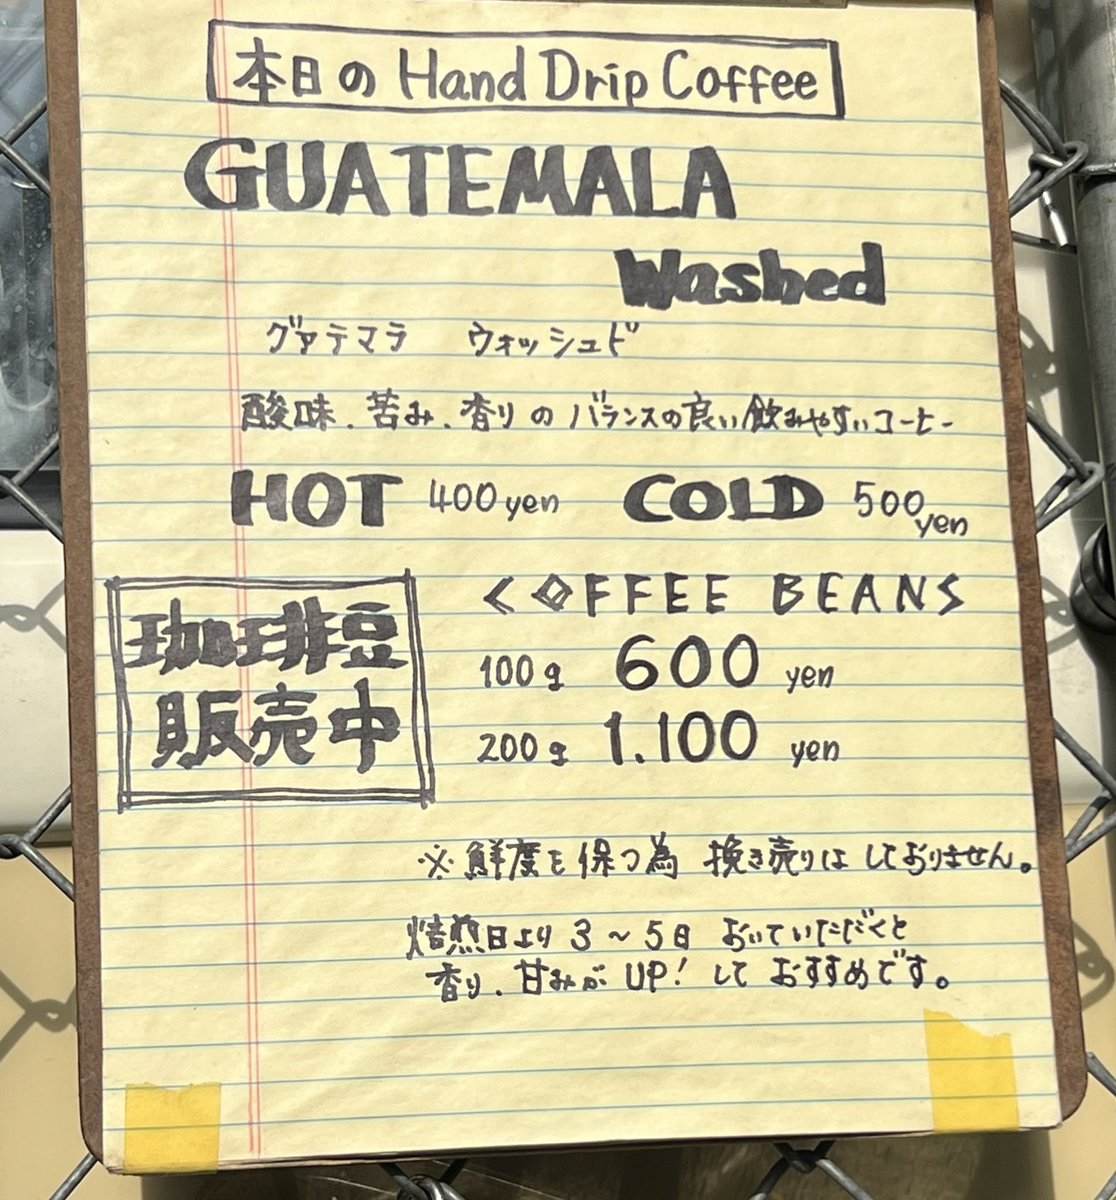 本日の Hand Drip Coffee
GUATEMALA
Washed
グァテマラ ウォッシュド
酸味、苦み、香りのバランスの良い飲みやすいコーヒー
HOT 400yen COLD 500yen
珈琲豆
販売中
COFFEE BEANS
100g 600 yen
200g 1.100 yen
※鮮度を保つ為 挽き売りはしておりません。
焙煎日より 3～5日 おいていただくと
香り、甘みがUP!して おすすめです。